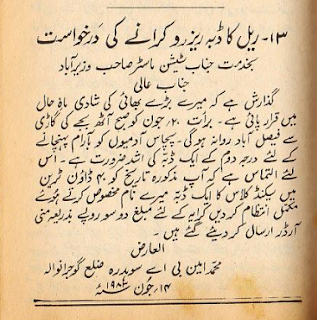 ۱۳- ریل کا ڈبہ ریزرو کرانے کی درخواست
بخدمت جناب سٹیشن ماسٹر صاحب وزیرآباد
جناب عالی
گذارش ہے کہ میرے بڑے بھائی کی شادی ماہ حال
میں قرار پائی ہے۔ برات ۲۰؍ جون کو صبح آٹھ بجے کی گاڑی
سے فیصل آباد روانہ ہوگی۔ پچاس آدمیوں کو بآرام پہنچانے
کے لئے درجہ دوم کے ایک ڈبّہ کی اشد ضرورت ہے۔ اس
لئے التماس ہے کہ آپ مذکورہ تاریخ کو ۴۰ ڈاؤن ٹرین
میں سیکنڈ کلاس کا ایک ڈبّہ میرے نام مخصوص کرتے ہوئے
مکمل انتظام کر دیں کرایہ کے لئے مبلغ دو سو روپے بذریعہ منی
آرڈر ارسال کر دیئے گئے ہیں۔
العارض
محمد امین بی اے سوہدرہ ضلع گوجرانوالہ
۱۴؍ جون ۱۹۸۲ء